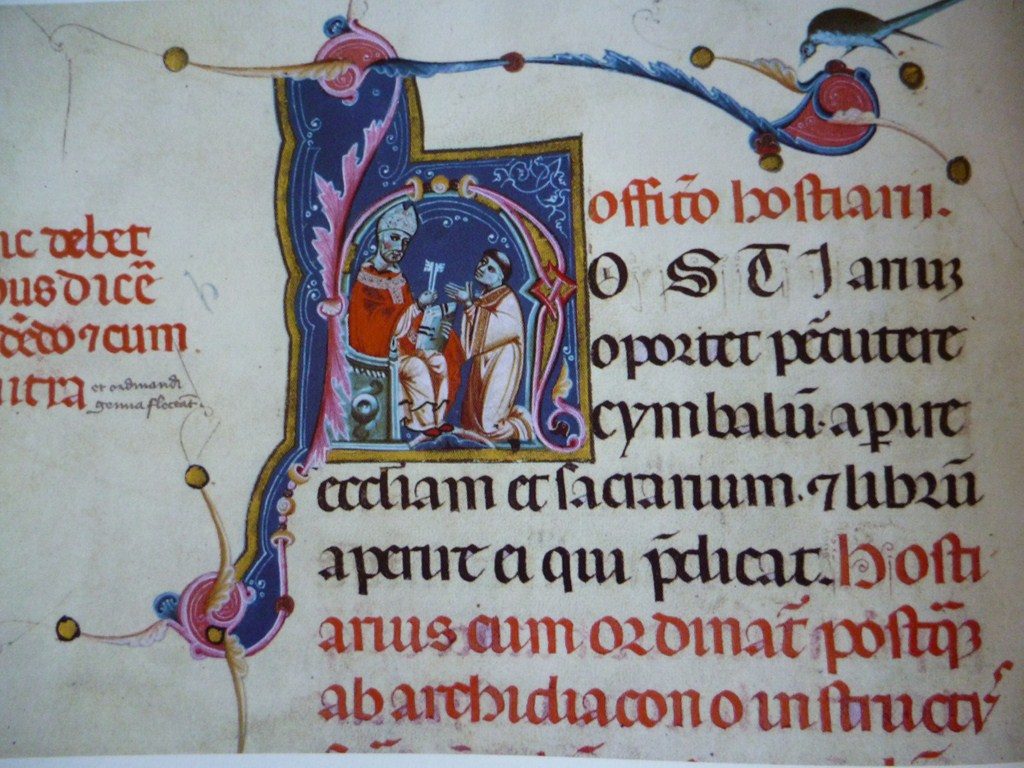 debet
dicē
⁊ cum
et ordinandi
genua flectent.
offit̄o hostiarii.
HOSTIarius
oportet p̄cutere
cymbalū. aꝑire
eccliam et sacrarium. ⁊ librū
aperire ei qui p̄dicat. Hosti
arius cum ordinat̄ postq̄ꝫ
ab archidiacono instructꝰ